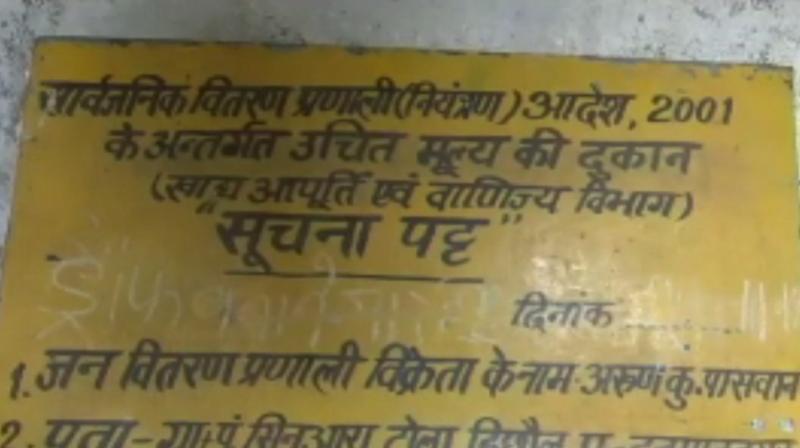 सार्वजनिक वितरण प्रणाली (नियंत्रण) आदेश, 2001
के अन्तर्गत उचित मूल्य की दुकान
(खाद्य आपूर्ति एवं वाणिज्य विभाग)
"सूचना पट्ट"
दिनांक
1. जन वितरण प्रणाली विक्रेता के नाम-अरुण कु. पासवान
2. पता-